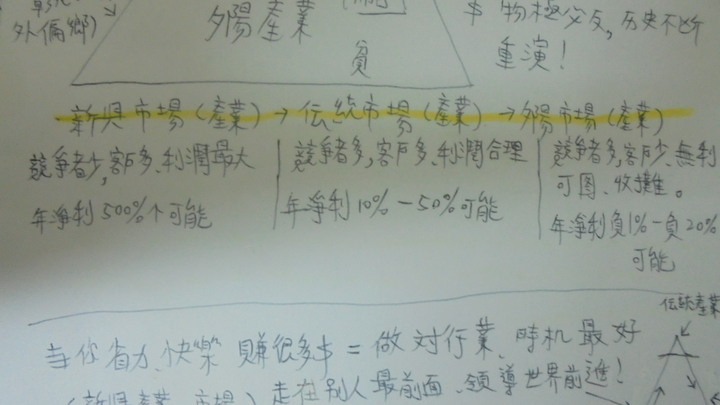 外偏鄉)
夕陽產業
貧
物極必反,历史不断
重演!
新興市場(產業)→伝統市場(產業)→夕陽市場(產業)
競爭者少,客戶多、利潤最大
年淨利500%个可能
競爭者多,客戶多、利潤合理
年淨利10%-50%可能
競爭者多,客戶少、無利
可图、收攤。
年淨利負1%-負20%
可能
伝統產業
当你省力、快樂 賺很多$=做对行業、時机最好
(新興產業、市場)走在別人最前面、領導世界前進!